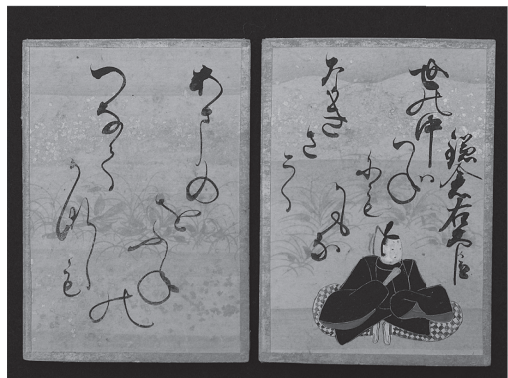 鎌倉右大臣
世の中ハ
つね
にも
かもな
なき
さ
こく
あまの
をふねの
つなて
かなし
も